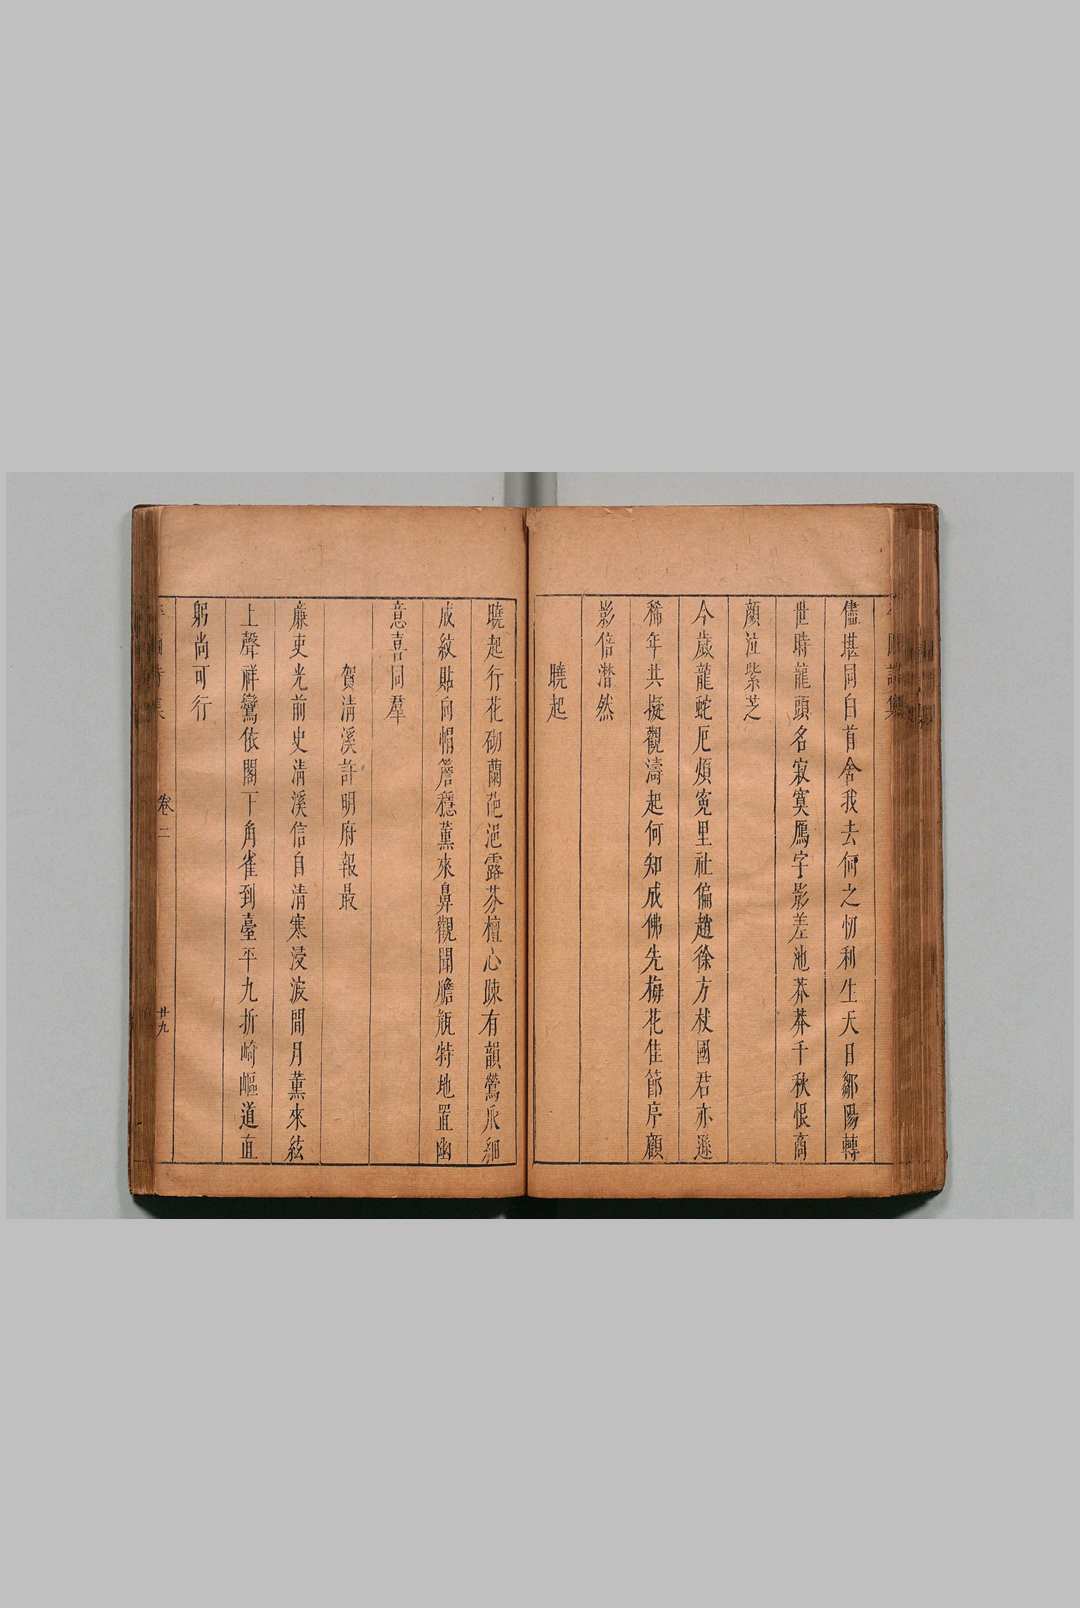 儘堪同白首舍我去何之忉利生天日鄒陽轉
世時龍頭名寂寞鴈字影差池莽莽千秋恨商
顏泣紫芝
今歲龍蛇厄煩冤里社偏趙徐方杖國君亦遜
稀年共擬觀濤起何知成佛先梅花佳節序顧
影倍潸然
曉起
曉起行花砌蘭葩浥露芬檀心疎有韻鶯爪細
成紋貼向帽簷穩薰來鼻觀聞膽瓶特地置幽
意喜同羣
賀清溪許明府報最
廉吏光前史清溪信自清寒浸波間月薰來絃
上聲祥鸞依閣下角雀到臺平九折崎嶇道直
躬尚可行
卷二
廿九